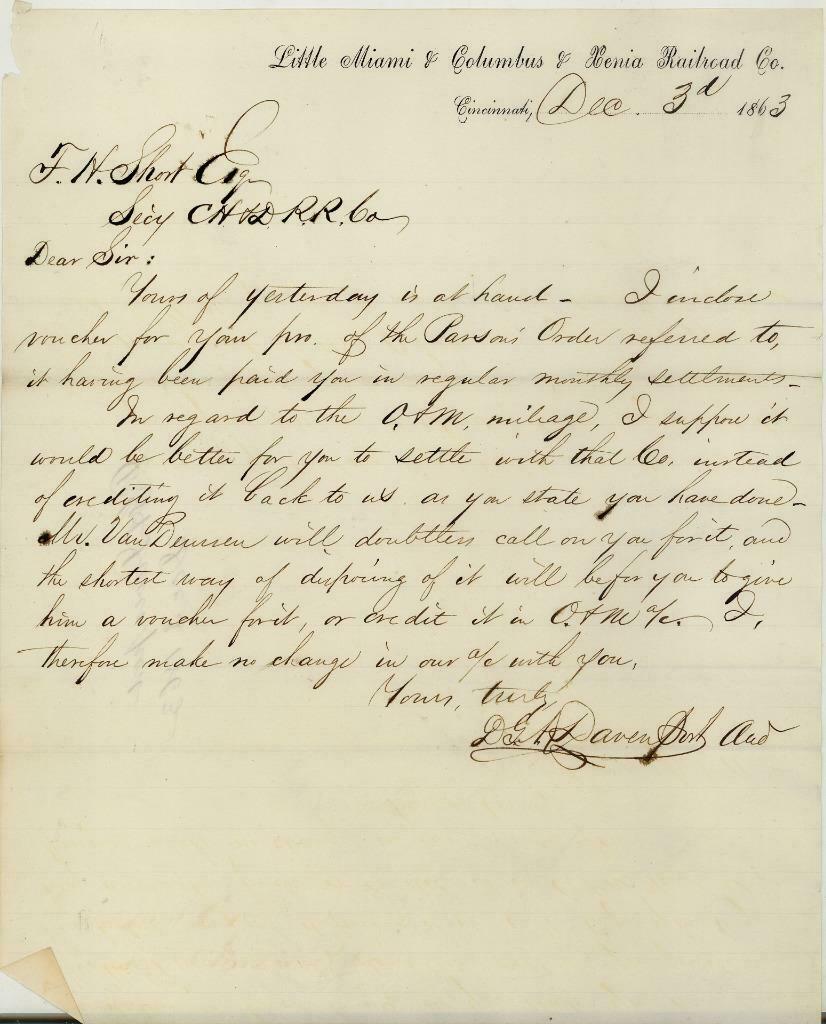 Little Miami & Columbus & Xenia Railroad Co.
Cincinnati, Dec. 3d 1863
F. H. Short Esq
Secy CH&D. R.R. Co
Dear Sir:
Yours of yesterday is at hand - I inclose
voucher for your pro. of the Parsons' Order referred to,
it having been paid you in regular monthly settlments -
In regard to the O.&M. mileage, I suppose it
would be better for you to settle with that Co. instead
of crediting it back to us as you state you have done -
Mr. Van Beussen will doubtless call on you for it, and
the shortest way of disposing of it will be for you to give
him a voucher for it, or credit it in O.&M a/c. I,
therefore make no change in our a/c with you,
Yours, truly,
D G A Davenport Aud